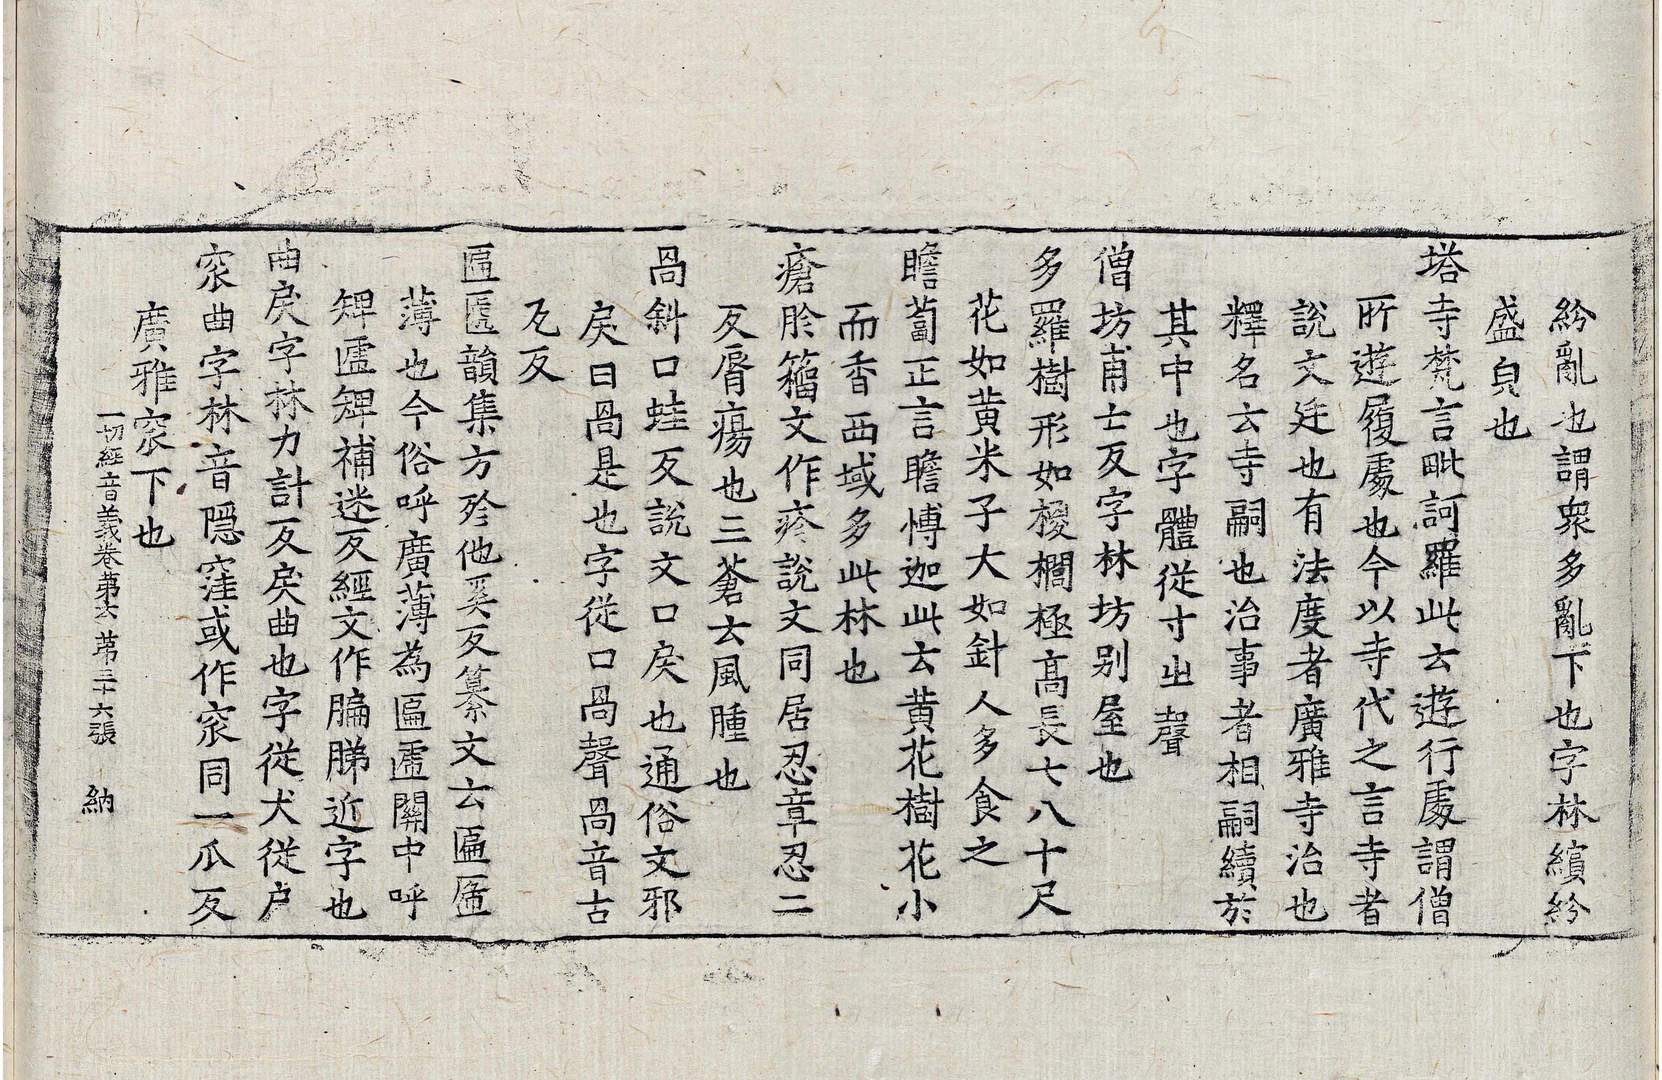 紛亂也謂衆多亂下也字林繽紛
盛皃也
塔寺梵言毗訶羅此云遊行處謂僧
所遊履處也今以寺代之言寺者
說文廷也有法度者廣雅寺治也
釋名云寺嗣也治事者相嗣續於
其中也字體從寸㞢聲
僧坊甫亡反字林坊別屋也
多羅樹形如椶櫚極高長七八十尺
花如黃米子大如針人多食之
瞻蔔正言瞻愽迦此云黃花樹花小
而香西域多此林也
瘡胗籀文作疹說文同居忍章忍二
反脣瘍也三蒼云風腫也
咼斜口蛙反說文口戾也通俗文邪
戾曰咼是也字從口咼聲咼音古
瓦反
匾㔸韻集方殄他奚反纂文云匾㔸
薄也今俗呼廣薄為匾㔸關中呼
㔸補迷反經文作膈䏲近字也
曲戾字林力計反戾曲也字從犬從户
窊曲字林音隱窪或作窊同一瓜反
廣雅窊下也
一切經音義卷第六 第三十六張 納